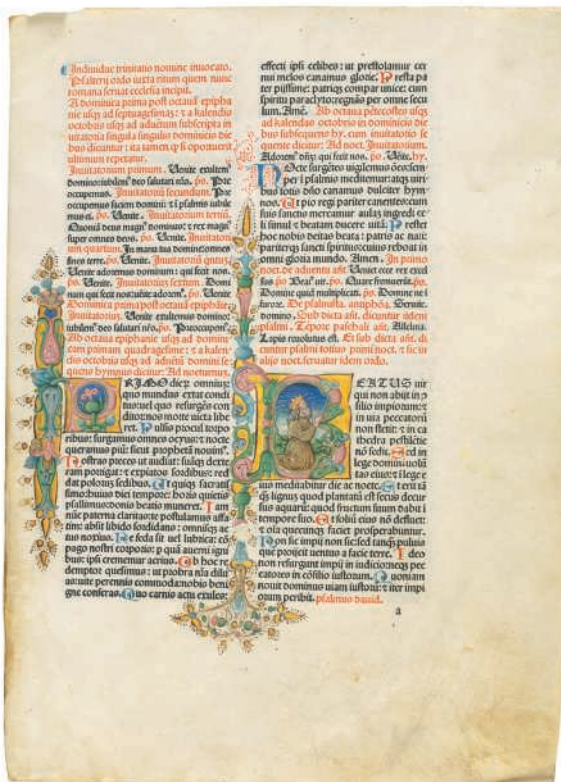 Individue trinitatis nomine inuocato.
Psalterii ordo iuxta ritum quem nunc
romana seruat ecclesia incipit.
A dominica prima post octauā epipha
nie usqȝ ad septuagesimaȝ: ⁊ a kalendis
octobris usqȝ ad aduentum subscripta in
uitatoria singula singulis dominicis die
bus dicantur: ita tamen qȝ si opo
ultimum repetatur.
Inuitatorium primum. Uenite exultem⁹
domino: iubilem⁹ deo salutari nr̄o. p̄s. Pre
occupemus. Inuitatoriū secundum. Pre
occupemus faciem domini: ⁊ ī psalmis iubile
mus ei. p̄s. Uenite. Inuitatoriū tertiū.
Quoniā deus magn⁹ dominus: ⁊ rex magn⁹
super omnes deos. p̄s. Uenite. Inuitatori
um quartum. In manu tua domine: omnes
fines terre. p̄s. Uenite. Inuitatoriū qntū.
Uenite adoremus dominum: qui fecit nos.
p̄s. Uenite. Inuitatoriū sextum. Domi
num qui fecit nos: uenite adorem⁹. p̄s. Uenite
Dominica prima post octauā epiphāie:
Inuitatoriuȝ. Uenite exultemus domino:
iubilem⁹ deo salutari nr̄o. p̄s. Preoccupem⁹.
Ab octaua epiphanie usqȝ ad domini
cam primam quadragesime: ⁊ a kalen
dis octobris usqȝ ad aduentū domini se
quens hymnus dicitur: Ad nocturnum.
PRIMO dierȝ omniuȝ
quo mundus extat condi
tus: uel quo resurgēs con
ditor: nos morte uicta libe
ret. Pulsis procul torpo
ribus: surgamus omnes ocyus: ⁊ nocte
queramus piū: sicut prophetā nouim⁹.
Nostras preces ut audiat: suāqȝ dexte
ram porrigat: ⁊ expiatos sordibus: red
dat polorȝ sedibus. Ut quiqȝ sacratis
simo: huius diei tempore: horis quietis
psallimus: donis beatis muneret. Iam
nūc paterna claritas: te postulamus affa
tim: absit libido sordidans: omnisqȝ ac
tus noxius. Ne feda sit uel lubrica: cō
pago nostri corporis: p quā auerni igni
bus: ipsi crememur acrius. Ob hoc re
demptor quesumus: ut probra nr̄a dilu
as: uite perennis commoda: nobis beni
gne conferas. Quo carnis actu exules:
effecti ipsi celibes: ut prestolamur cer
nui melos canamus glorie. Presta pa
ter piissime: patriqȝ compar unice: cum
spiritu paraclyto: regnās per omne secu
lum. Amē. Ab octaua pētecostes usqȝ
ad kalendas octobris in dominicis die
bus subsequens hy. cum inuitatorio se
quente dicitur: Ad noct. Inuitatorium.
Adorem⁹ dn̄ȝ: qui fecit nos. p̄s. Uēite. hy.
Nocte surgētes uigilemus ōes: sem
per ī psalmis meditemur: atqȝ uiri
bus totis dn̄o canamus dulciter hym
nos. Ut pio regi pariter canentes: cum
suis sanctis mereamur aulaȝ ingredi ce
li: simul ⁊ beatam ducere uitā. Prestet
hoc nobis deitas beata: patris ac nati:
pariterqȝ sancti spiritus: cuius reboat in
omni gloria mundo. Amen. In primo
noct. de aduentu añ. Ueniet ecce rex excel
sus p̄s Beat⁹ uir. p̄s. Quare fremuerūt. p̄s.
Domine quid multiplicati. p̄s. Domine ne ī
furore. De psalmista. antiphōa. Seruite.
domino. Sub dicta añt. dicuntur iidem
psalmi. Tēpore paschali añt. Alleluia.
Lapis reuolutus est. Et sub dicta añt. di
cuntur psalmi totius primi noct. ⁊ sic in
alijs noct. seruatur idem ordo.
BEATUS uir
qui non abiit in cō
silio impiorum: ⁊
in uia peccatorū
non stetit: ⁊ in ca
thedra pestilētie
nō sedit. Sed in
lege domini uolū
tas eius: ⁊ ī lege e
ius meditabitur die ac nocte. Et erit tā
qȝ lignuȝ quod plantatū est secus decur
sus aquaruȝ: quod fructum suum dabit ī
tempore suo. Et foliū eius nō defluet:
⁊ oīa quecunqȝ faciet prosperabuntur.
Non sic impii non sic: sed tanqȝ puluis
que proijcit uentus a facie terre. Ideo
non resurgunt impii in iudicio: neqȝ pec
catores in cōsilio iustorum. Quoniam
nouit dominus uiam iustorū: ⁊ iter impi
orum peribit. psalmus dauid.
a